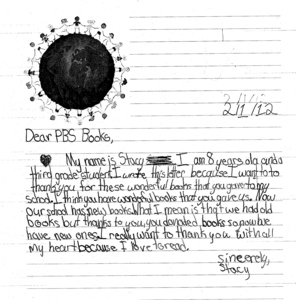 2/1/12
Dear PBS Books,
My name is Stacy I am 8 years old and a
third grade student I wrote this letter because I want to
thank you for these wonderful books that you gave to my
school. I think you have wonderful books that you gave us. Now
our school has new books. What I mean is that we had old
books but thanks to you, you donated books so now we
have new ones. I really want to thank you with all
my heart because I love to read.
sincerely,
Stacy